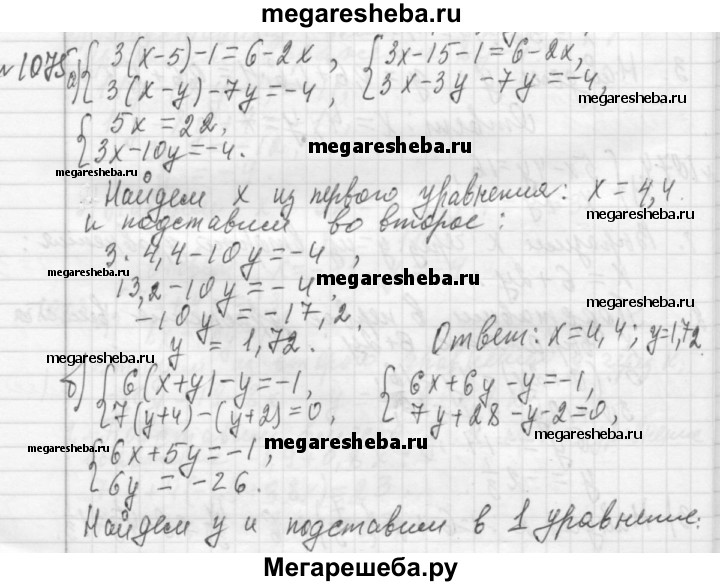 megaresheba.ru
№1075
а) { 3(x-5)-1=6-2x, { 3x-15-1=6-2x,
3(x-y)-7y=-4, 3x-3y-7y=-4,
megaresheba.ru
{ 5x=22,
3x-10y=-4.
megaresheba.ru
Найдем x из первого уравнения: x=4,4
и подставим во второе:
megaresheba.ru
3·4,4-10y=-4,
megaresheba.ru
13,2-10y=-4,
megaresheba.ru
-10y=-17,2.
megaresheba.ru
y=1,72. Ответ: x=4,4; y=1,72.
megaresheba.ru
б) { 6(x+y)-y=-1, { 6x+6y-y=-1,
7(y+4)-(y+2)=0, 7y+28-y-2=0,
megaresheba.ru
megaresheba.ru
{ 6x+5y=-1,
megaresheba.ru
6y=-26.
Найдем y и подставим в 1 уравнение:
Мегарешеба.ру